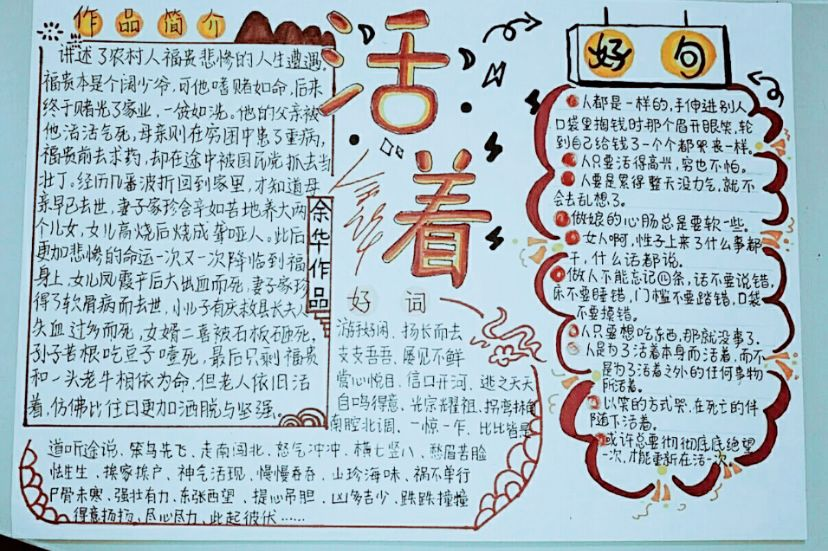 作品简介
讲述了农村人福贵悲惨的人生遭遇。
福贵本是个阔少爷,可他嗜赌如命,后来
终于赌光了家业,一贫如洗。他的父亲被
他活活气死,母亲则在穷困中患了重病,
福贵前去求药,却在途中被国民党抓去当
壮丁。经历几番波折回到家里,才知道母
亲早已去世,妻子家珍含辛如苦地养大两
个儿女,女儿高烧后烧成聋哑人。此后
更加悲惨的命运一次又一次降临到福
身上,女儿凤霞产后大出血而死,妻子家珍
得了软骨病而去世,小儿子有庆救县长夫人
失血过多而死,女婿二喜被石板砸死,
孙子苦根吃豆子噎死,最后只剩福贵
和一头老牛相依为命,但老人依旧活
着,仿佛比往日更加洒脱与坚强。
余华作品
活着
好词
游手好闲、扬长而去
支支吾吾、屡见不鲜
赏心悦目、信口开河、逃之夭夭
自鸣得意、光宗耀祖、拐弯抹角
南腔北调、一惊一乍、比比皆是
道听途说、笨鸟先飞、走南闯北、怒气冲冲、横七竖八、愁眉苦脸
怯生生、挨家挨户、神气活现、慢慢吞吞、山珍海味、祸不单行
尸骨未寒、强壮有力、东张西望、提心吊胆、凶多吉少、跌跌撞撞
得意扬扬、尽心尽力、此起彼伏……
好句
人都是一样的,手伸进别人
口袋里掏钱时那个眉开眼笑,轮
到自己给钱了一个个都累丧一样。
人只要活得高兴,穷也不怕。
人要是累得整天没力气,就不
会去乱想了。
做娘的心肠总是要软一些。
女人啊,性子上来了什么事都
干,什么话都说。
做人不能忘记四条,话不要说错,
床不要睡错,门槛不要踏错,口袋
不要摸错。
人只要想吃东西,那就没事了。
人是为了活着本身而活着,而不
是为了活着之外的任何事物
所活着。
以笑的方式哭,在死亡的伴
随下活着。
或许总要彻彻底底绝望
一次,才能重新在活一次。